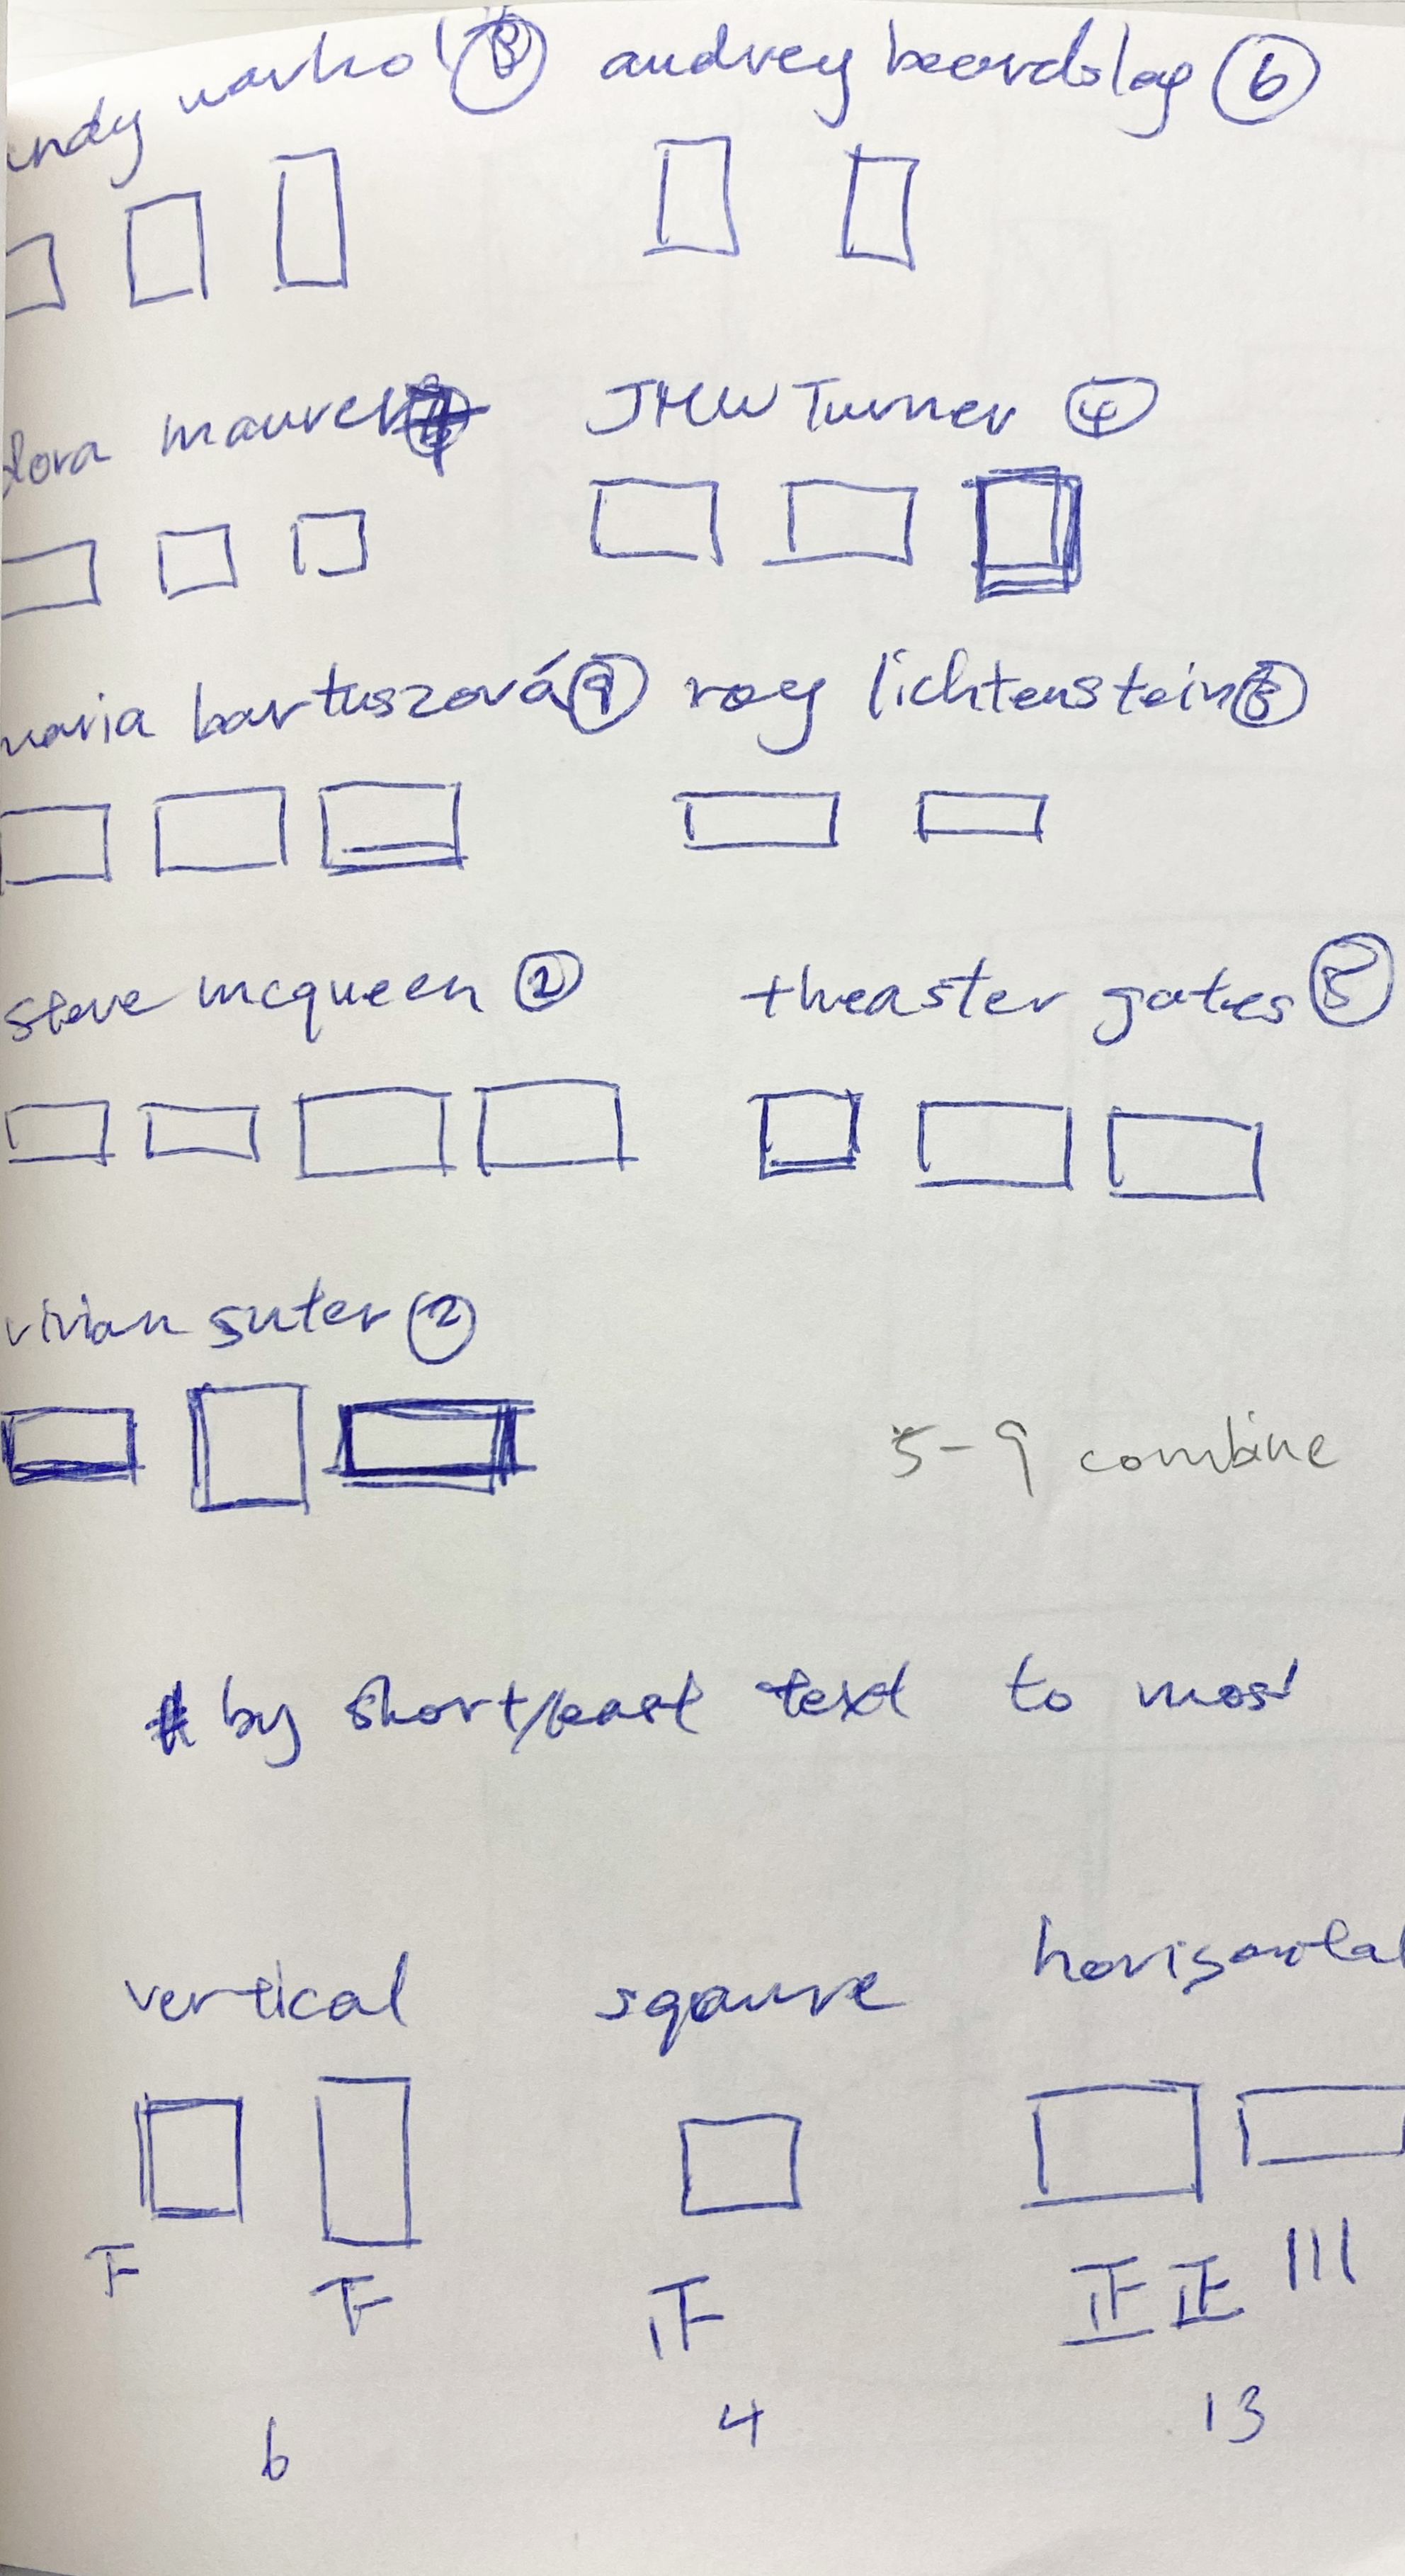 andy warhol audrey beardsley 6
dora maurer JMW Turner 4
maria bartuszová 9 roy lichtenstein
steve mcqueen 2 theaster gates 5
vivian suter 2
5-9 combine
# by short/least text to most
vertical sqaure horisontal
下 下 止 正正 |||
6 4 13